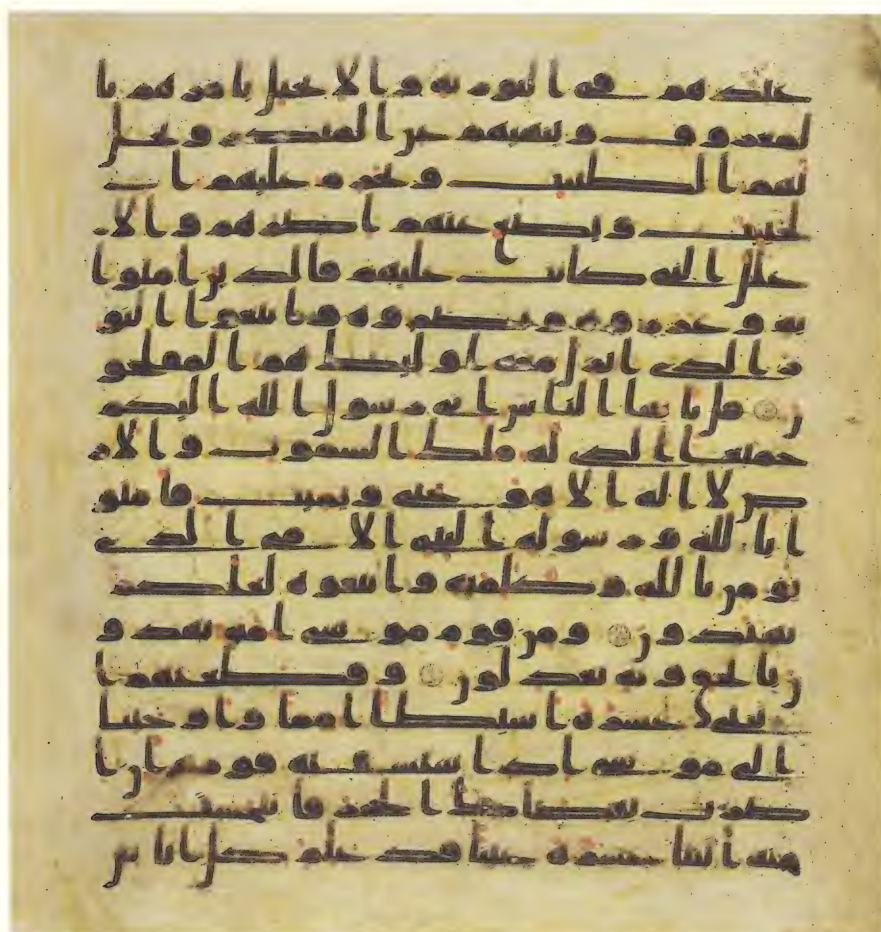 عندهم في التورية والانجيل يامرهم با
لمعروف وينهيهم عن المنكر ويحل
لهم الطيبت ويحرم عليهم ا
لخبيث ويضع عنهم اصرهم والا
غلل التي كانت عليهم فالذين امنوا
به وعزروه ونصروه واتبعوا النو
ر الذي انزل معه اوليك هم المفلحو
ن قل يايها الناس اني رسول الله اليكم
جميعا الذي له ملك السموت والار
ض لا اله الا هو يحي ويميت فامنو
ا بالله ورسوله النبي الامي الذي
يومن بالله وكلمته واتبعوه لعلكم
تهتدون ومن قوم موسى امه يهدو
ن بالحق وبه يعدلون وقطعنهم ا
ثنتي عشره اسبطا امما واوحينا
الى موسى اذ استسقيه قومه ان ا
ضرب بعصاك الحجر فانبجست
منه اثنتا عشره عينا قد علم كل اناس